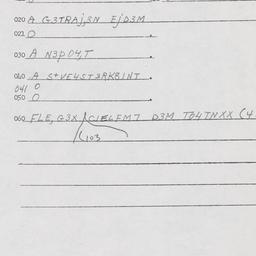 020 A G3TRAj,3N EjD3M
021 O
030 A N3PO4,T
040 A S+VE4ST3RKRINT
041 O
050 O
060 FLE,G3X CIELFM7 D3M TO4TNXX (4
103